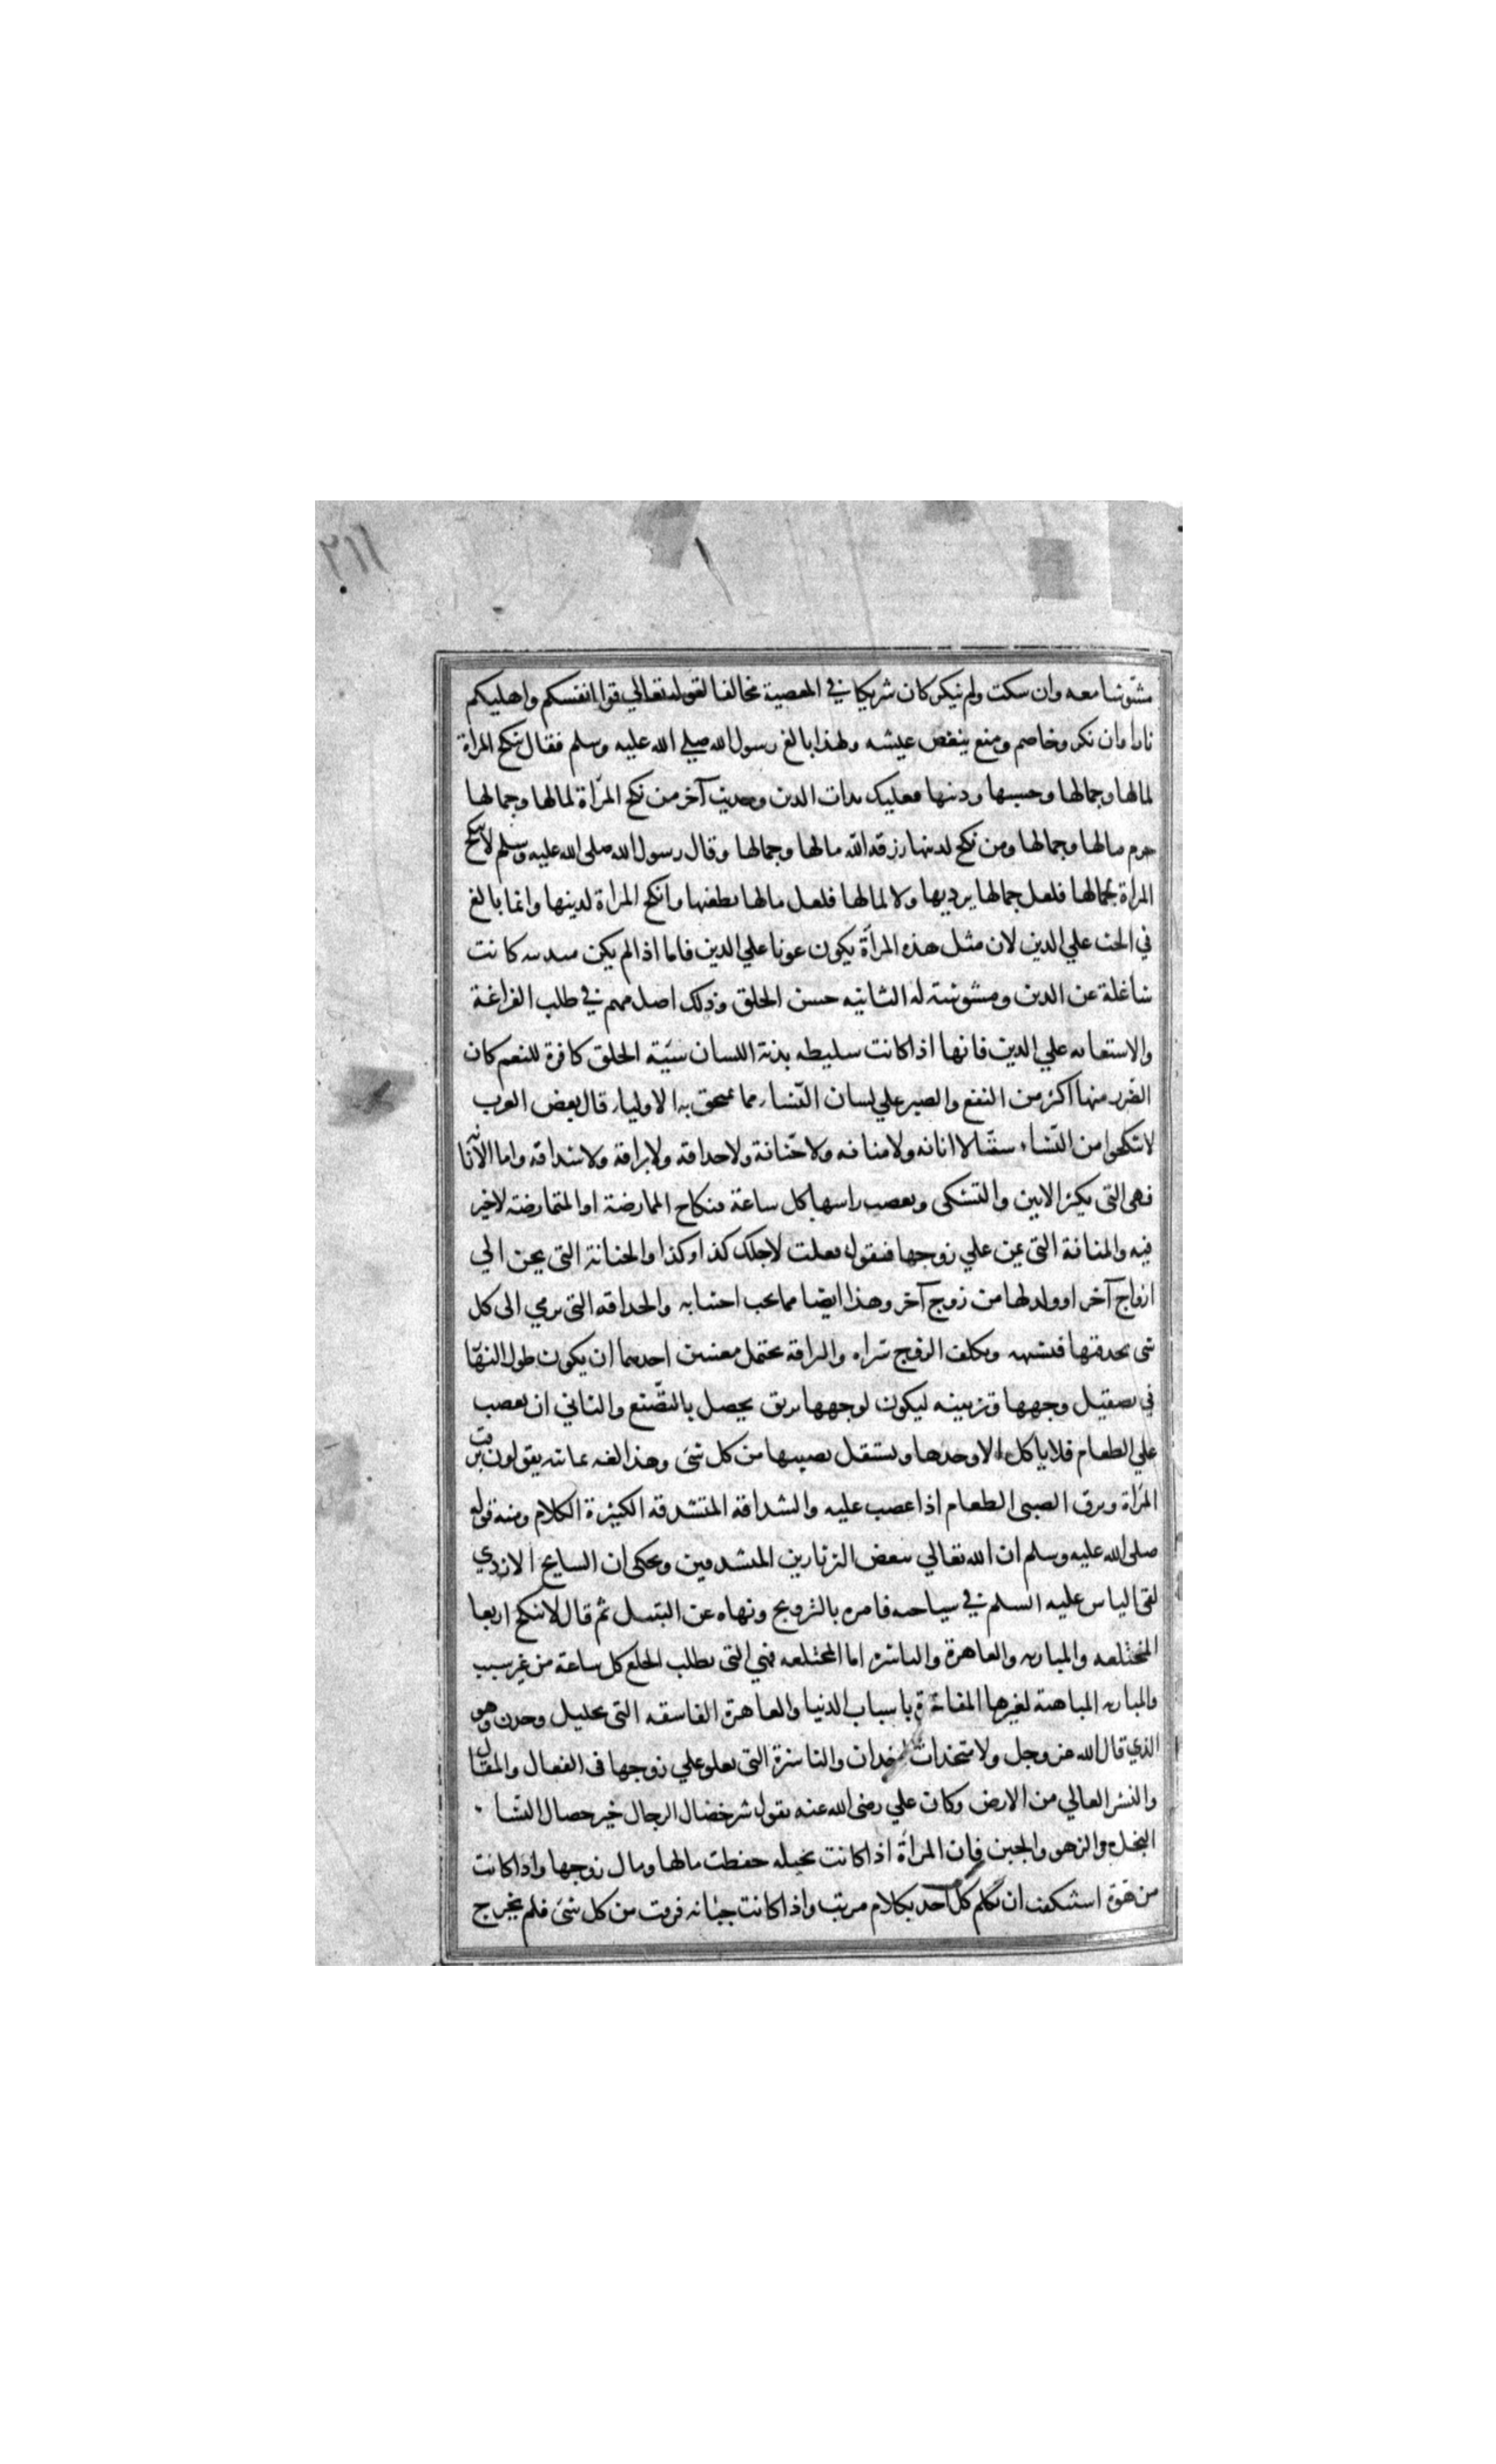 ٢١١
مشوشا معه وان سكت ولم نيكر كان شريكا في المعصية مخالفا لقوله تعالي قوا انفسكم واهليكم
نارا وان نكر وخاصم ومنع ينغص عيشه ولهذا بالغ رسول الله صلي الله عليه وسلم فقال نكح المراة
لمالها وجمالها وحسبها ودينها فعليك بذات الدين وحديث آخر من نكح المرأة لمالها وجمالها
حرم مالها وجمالها ومن نكح لدينها رزقه الله مالها وجمالها وقال رسول الله صلى الله عليه وسلم لا تنكح
المراة بجمالها فلعل جمالها يرديها ولا لمالها فلعل مالها يطغيها وانكح المراة لدينها وانما بالغ
في الحث علي الدين لان مثل هذه المرأة يكون عونا علي الدين فاما اذا لم يكن متدينه كانت
شاغلة عن الدين ومشوشة له الثانيه حسن الخلق وذلك اصل مهم في طلب الفراغة
والاستعانه علي الدين فانها اذا كانت سليطه بذئة اللسان سيّئة الخلق كافرة للنعم كان
الضرر منها اكثر من النفع والصبر علي لسان النساء مما يمتحن به الاولياء قال بعض العرب
لا تنكحوا من النساء ستّا لا انانه ولا منانه ولا حنانة ولا حداقه ولا براقة ولا شداقه واما الأنانه
فهى التى يكثر الانين والتشكى ويعصب راسها كل ساعة فنكاح الممارضة او المتمارضة لا خير
فيه والمنانة التى يمن علي زوجها فيقول فعلت لاجلك كذا وكذا والحنانة التى يحن الي
ازواج آخر او ولد لها من زوج آخر وهذا ايضا مما يجب اجتنابه والحداقه التى يرمي الى كل
شى بحدقتها فتشتهيه ويكلف الزوج شراه والبراقة يحتمل معنيين احدهما ان يكون طول النهار
في تصقيل وجهها وتزيينه ليكون لوجهها بريق يحصل بالتصنع والثاني ان يغضب
علي الطعام فلا ياكل الا وحدها ويستقل نصيبها من كل شئ وهذا لغه يمانيه يقولون برقت
المرأة وبرق الصبى الطعام اذا غضب عليه والشداقه المتشدقه الكثيرة الكلام ومنه قوله
صلى الله عليه وسلم ان الله تعالي يبغض الثرثارين المتشدقين ويحكى ان السايح الازدي
لقى الياس عليه السلم في سياحته فامره بالتزويج ونهاه عن التبتل ثم قال لا تنكح اربعا
المختلعه والمباريه والعاهرة والناشزه اما المختلعه فهي التى يطلب الخلع كل ساعة من غير سبب
والمباريه المباهية لغيرها المفاخرة باسباب الدنيا والعاهرة الفاسقه التى بخليل وخدن وهو
الذي قال الله عز وجل ولا متخذات اخدان والناشزة التى يعلو علي زوجها فى الفعال والمقال
والنشز العالي من الارض وكان علي رضى الله عنه يقول شر خصال الرجال خير خصال النساء
البخل والزهو والجبن فان المرأة اذا كانت بخيله حفظت مالها ومال زوجها واذا كانت
استنكفت ان تكلم كل احد بكلام مريب واذا كانت جبانه فرقت من كل شئ فلم يخرج